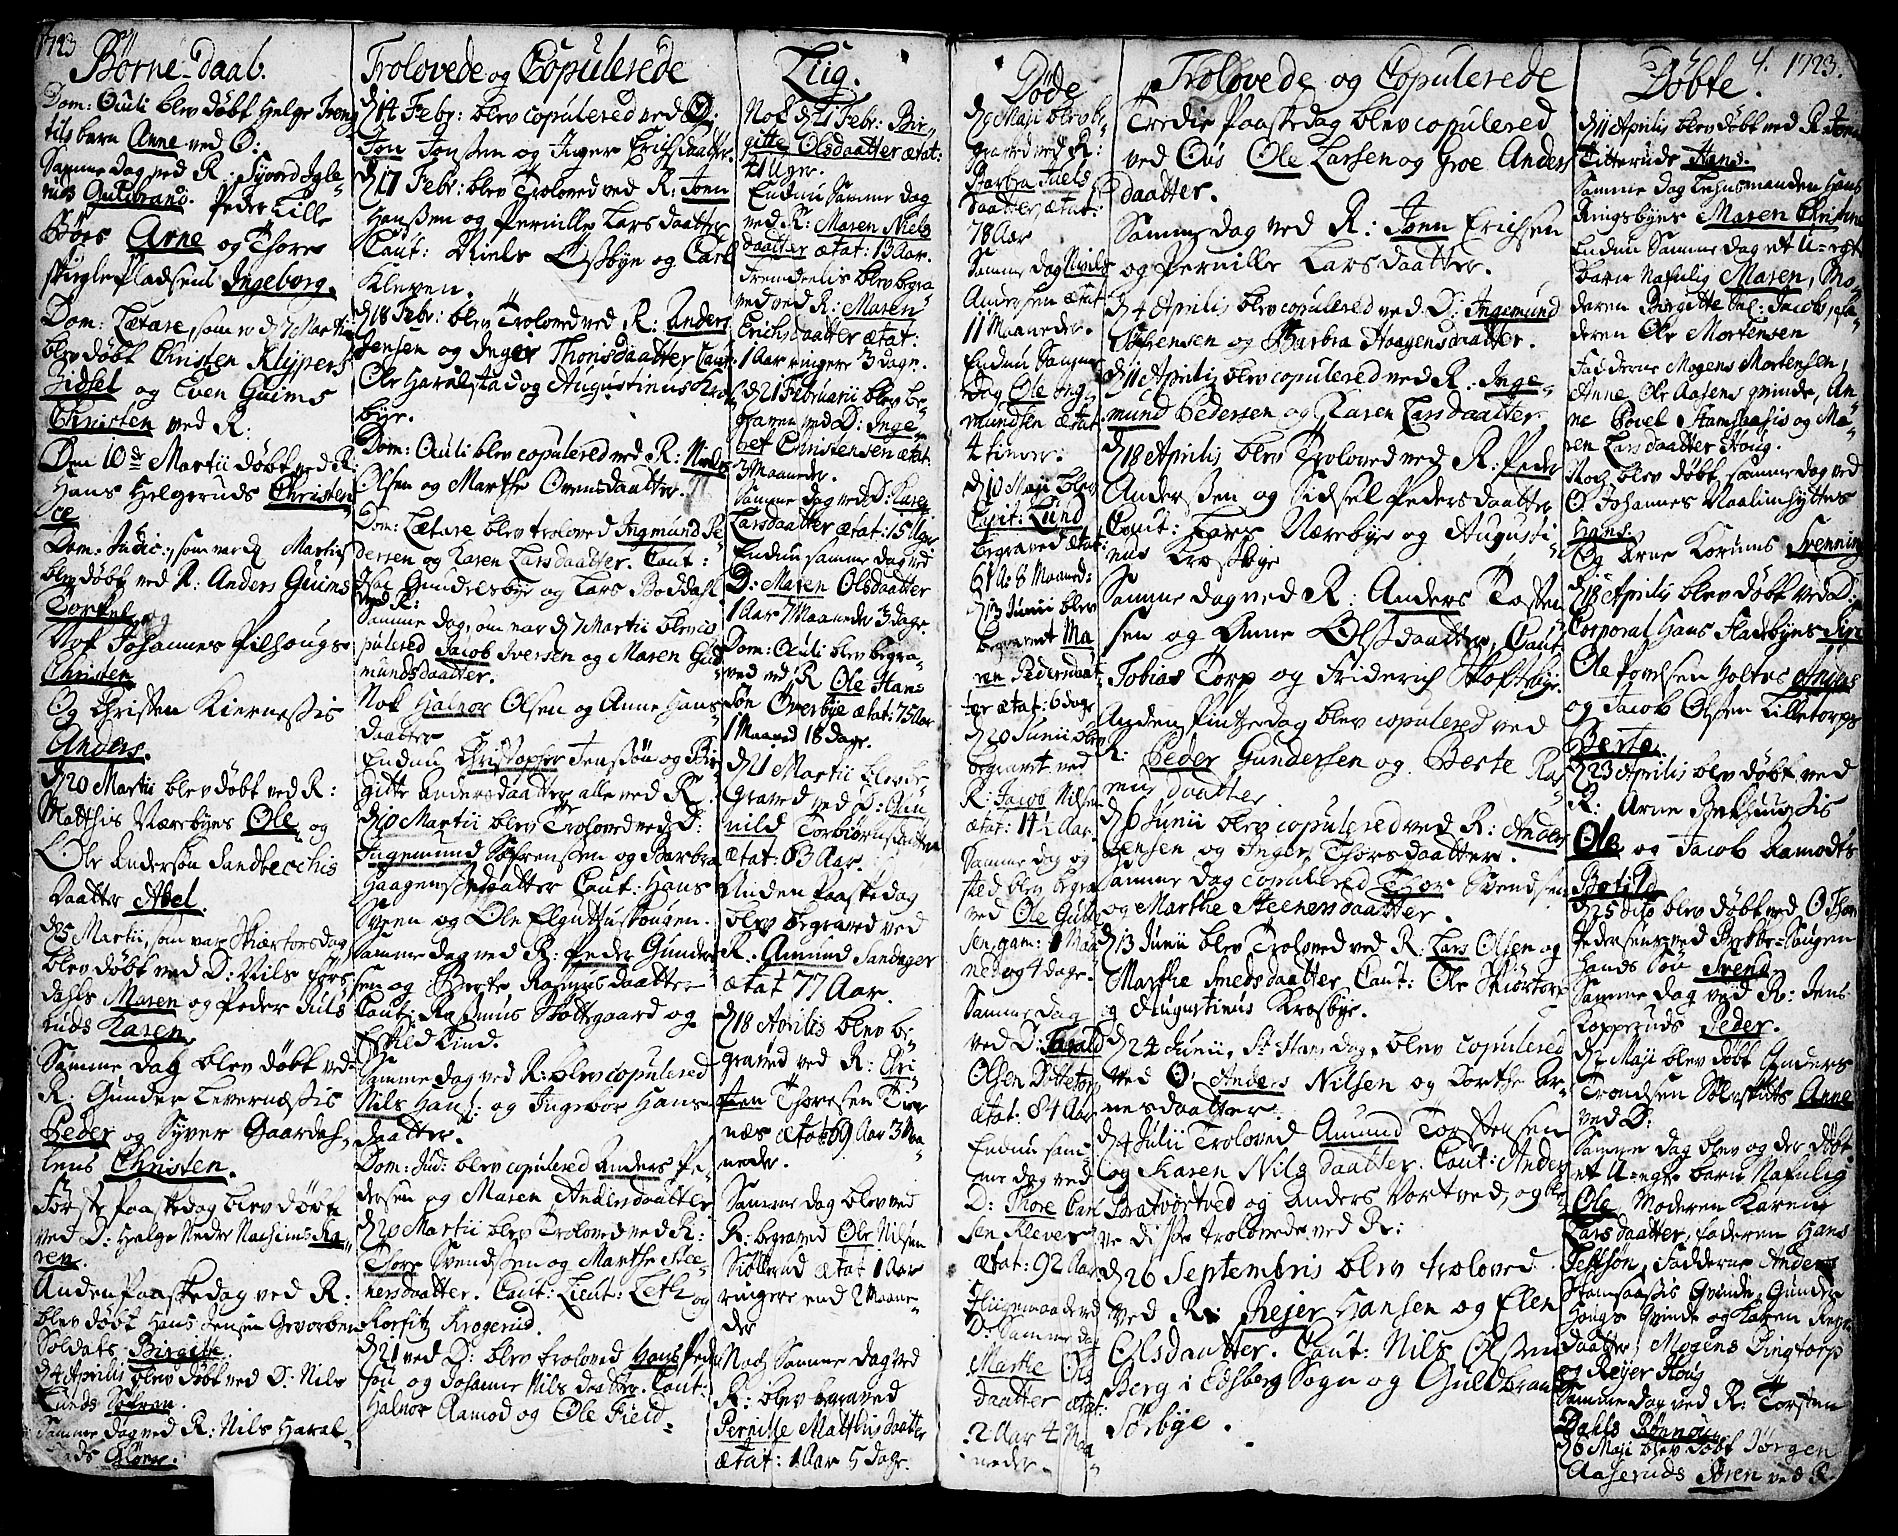 1723
Børne-Daab.
Dom: Oculi blev døbt Helge
tils barn Anne ved Ø:
Samme dag ved R: Syvord Igle-
ruds Gulbrand. Peder Lille
Børs Arne og Thore
Pladsens Ingeborg.
Dom: Lætare, som er d 7 Martii
blev døbt Christen Klypers
Zidsel og Even Guims
Christen ved R:
Den 10de Martii døbt ved R:
Hans Helgeruds Christen-
ce
Dom: Judic:, som var d Martii
blev døbt ved R: Anders Guims
Torkel, og
Nok Johannes Pilhougs
Christen
Og Christen Kiernessis
Anders.
d 20 Martii blev døbt ved R:
Matthis Nærebyes Ole og
Ole Andersøn Sandbecchis
Daatter Abel.
d 25 Martii, som var Skiærtorsdag
blev døbt ved D: Nils Førs-
dahls Maren og Peder Juls
ruds Karen.
Samme dag blev døbt ved
R: Gunder Levernæssis
Peder og Syver Gaardas-
lens Christen.
Første Paaskedag blev døbt
ved D: Helge Nedre Nasheims Ka-
ren.
Anden Paaskedag ved R.
blev døbt Hans Jensen Gevorben
Soldats Birgitte.
d 4 Aprilis blev døbt ved D: Nils
Lunds Søfren.
Samme dag ved R: Nils Haral-
Trolovede og Copulerede
d 14 Febr: blev copulered ved Ø:
Jon Jonssen og Inger Erichsdaatter.
d 17 Febr: blev Trolovet ved R: Jon
Hanssen og Pernille Larsdaatter
Caut: Niels Ossbye og Carl
Kleven.
d 18 Febr: blev Troloved ved R: Anders
Jensen og Inger Thorisdaatter Caut:
Ole Haralstad og Augustinus Kros-
bye.
Dom: Oculi blev copulered ved R: Niels
Olsen og Marthe Ovensdaatter.
Dom: Lætare blev troloved Ingmund Pe-
dersen og Karen Larsdaatter. Caut:
Gundersbye og Lars Boddahl
ved R:
Samme dag, som var d 7 Martii blev co-
pulered Jacob Iversen og Maren Gud-
mundsdaatter.
Nok Halnor Olsen og Anne Hans-
daatter
Endnu Christopher Jenssøn og Bir-
gitte Andersdaatter, alle ved R.
d 10 Martii blev Troloved ved D:
Ingemund Søfrenssen og Barbra
Haagensdaatter Caut: Hans
Sveen og Ole Elguthuskougen.
Samme dag ved R: Peder Gunder-
sen og Berte Rasmusdaatter
Caut: Rasmus Stottsgaard og
Eskild Lind.
Samme dag ved R: blev copulered
Nils Hans: og Ingebor Hans-
daatter.
Dom: Jud: blev copulered Anders Pe-
dersen og Maren Andersdaatter
d 20 Martii blev Troloved ved R:
Thore Svendssen og Marthe Stee-
nersdaatter. Caut: Lieut: Leth og
Korfitz Krogerud.
d 21 ved D: blev troloved Hans Peder-
søn og Johanne Nilsdaatter. Caut:
Halnor Aamod og Ole Field.
Liig.
Nok d 21 Febr: Bir-
gitte Olsdaatter ætat:
21 Uger.
Endnu samme dag
ved R: Maren Niels
daatter ætat: 13 Aar.
Fremdeelis blev begra-
ved ved R: Maren
Erichsdaatter ætat:
1 Aar ringere 3 dage.
d 21 Februarii blev be-
graven ved D: Inge-
bet Christensen ætat:
3 Maaneder.
Samme dag ved D: Karen
Larsdaatter ætat: 15 Uger
Endnu samme dag ved
D: Maren Olsdaatter
1 Aar 7 Maaneder 3 dage.
Dom: Oculi blev begra-
ved ved R Ole Hans
søn Overbye ætat: 75 Aar
1 Maaned 18 dage.
d 21 Martii blev be-
graved ved D: Gun-
nild Torbiørnsdaatter
ætat: 63 Aar.
Anden Paaskedag
blev begraved ved
R. Amund Sandager
ætat 77 Aar.
d 18 Aprilis blev be-
graved ved R: Chri-
sten Thoresen Tier
næs ætat 69 Aar 3 Maa-
neder.
Samme dag blev ved
R: begraved Ole Nilsøn
Siøllerud ætat 1 Aar
ringere end 2 Maane-
der
Noch Samme dag ved
R: blev begraved
Pernille Matthisdaatter
ætat: 1 Aar 5 dage.
Døde
d 9 Maji blev be-
graved ved R:
Barbra Juels
daatter ætat:
78 Aar
Samme dag Nivels
Andersen ætat
11 Maaneder.
Endnu Samme
dag Ole Ing-
mundsen ætat
4 timer.
d 10 Maji blev
Capit: Lund
begraved ætat:
61 A: 8 Maaned:
d 13 Junii blev
begravet Ma
ren Pedersdaat-
ter ætat: 6 dage
d 20 Junii blev
begravet ved
R: Jacob Nilsen
ætat: 14 1/2 Aar
Samme dag og
sted blev begra-
ved Ole Gulb
sen, gam: 1 Maa
ned og 4 dage.
Samme dag
ved D: Harald
Olsen Dottetorp
ætat: 84 Aar
Endnu sam-
me dag ved
D: Thore Carl
sen Kleven
ætat: 92 Aar
D: Samme dag
Marthe Ols
daatter ætat:
2 Aar 4 Maa-
neder.
Trolovede og Copulerede
Tredie Paaskedag blev copulered
ved Øus Ole Larsen og Groe Anders
daatter.
Samme dag ved R: Jonn Erichsen
og Pernille Larsdaatter.
d 4 Aprilis blev copulered ved D: Ingemund
Søfrensen og Barbra Haagensdaatter.
d 11 Aprilis blev copulered ved R: Inge-
mund Pedersen og Karen Larsdaatter
d 18 Aprilis blev Troloved ved R: Peder
Anderssen og Sidsel Pedersdaatter
Caut: Lars Nærebye og Augusti-
nus Krosbye
Samme dag ved R: Anders Tosten
sen og Anne Olsdaatter, Caut:
Tobias Torp og Friderich Hofsbye.
Anden Pintzedag blev copulered ved
R: Peder Gundersen og Berte Ras-
mus daatter
d 6 Junii blev copulered ved R: Anders
Jensen og Inger Thorsdaatter.
Samme dag copulered Thor Svendsen
og Marthe Steenersdaatter.
d 13 Junii blev Troloved ved R: Lars Olsen og
Marthe Smedsdaatter Caut: Ole Skiørtorp
og Augustinus Krosbye.
d 24 Junii, St Hansdag, blev copulered
ved Ø: Anders Nilsen og Dorthe Ar-
nesdaatter.
d 4 Julii Troloved Amund Torstensen
og Karen Nilsdaatter. Caut: Anders
Taratvortved og Anders Vortved, og ble-
ve disse trolovede ved R:
d 26 Septembris blev troloved
ved R: Rejer Hansen og Elen
Olsdaatter. Caut: Nils Olssen
Berg i Edsberg Sogn og Guldbrand
Sørbye.
4. 1723.
Døbte.
d 11 Aprilis blev døbt ved R. Jonn
Titteruds Hans.
Samme dag Lehnsmanden Hans
Ringsbyes Maren Christine
Endnu Samme dag et U-egt
barn Nafnlig Maren, Mo-
deren Birgitte Sal: Jacobs, fa-
deren Ole Mortensen
Fadderne Mogens Mortensen,
Anne Ole Aasens qvinde, An-
ne Povel Stamsaasis og Ma-
ren Larsdaatter Houg.
Noch blev døbt samme dag ved
Ø. Johannes Naalinhyttes
Hans.
Og Arne Korums Svenning
d 18 Aprilis blev døbt ved D:
Corporal Hans Hadbyes
Ole Povelsen Holtes Anders
og Jacob Olsen Lilletorps
Berte.
d 23 Aprilis blev døbt ved
R: Arne Berkhougsis
Ole og Jacob Aamodts
Bertild
d 25 dito blev døbt ved Ø
Pedersens ved Brekke-Sougen
Hands Søn Svend.
Samme dag ved R: Jens
Kopperuds Peder.
d 2 Maji blev døbt Gunders
Trondsen Sølvskuds Anne
ved D:
Samme dag blev og der døbt
et U-egte barn Nafnlig
Ole Moderen Karen
Larsdaatter, faderen Hans
Jettsøn, Fadderne Anders
Stomsaassis Qvinde, Gunder
Hougs qvinde og Karen Reyers
daatter, Mogens Bingtorp
og Reyer Houg
Samme dag ved R: Torsten
Dahls Rønnou
d 6 Maji blev døbt Jørgen
Aaseruds Søren ved R